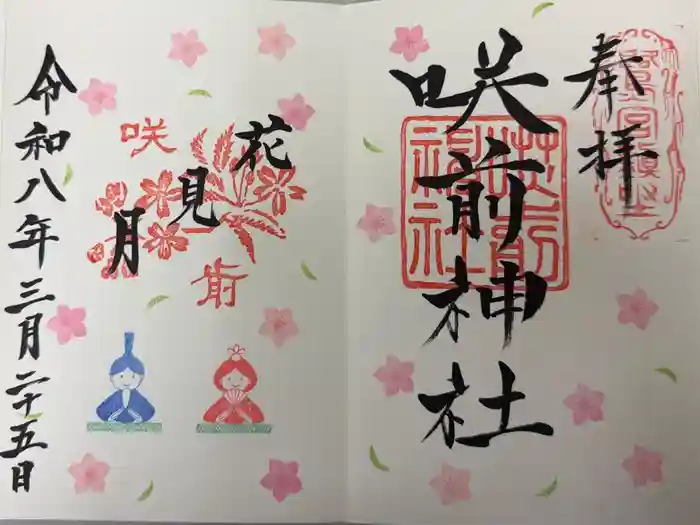 奉拝
咲前神社
咲前神社
花見月
咲前
令和八年三月二十五日